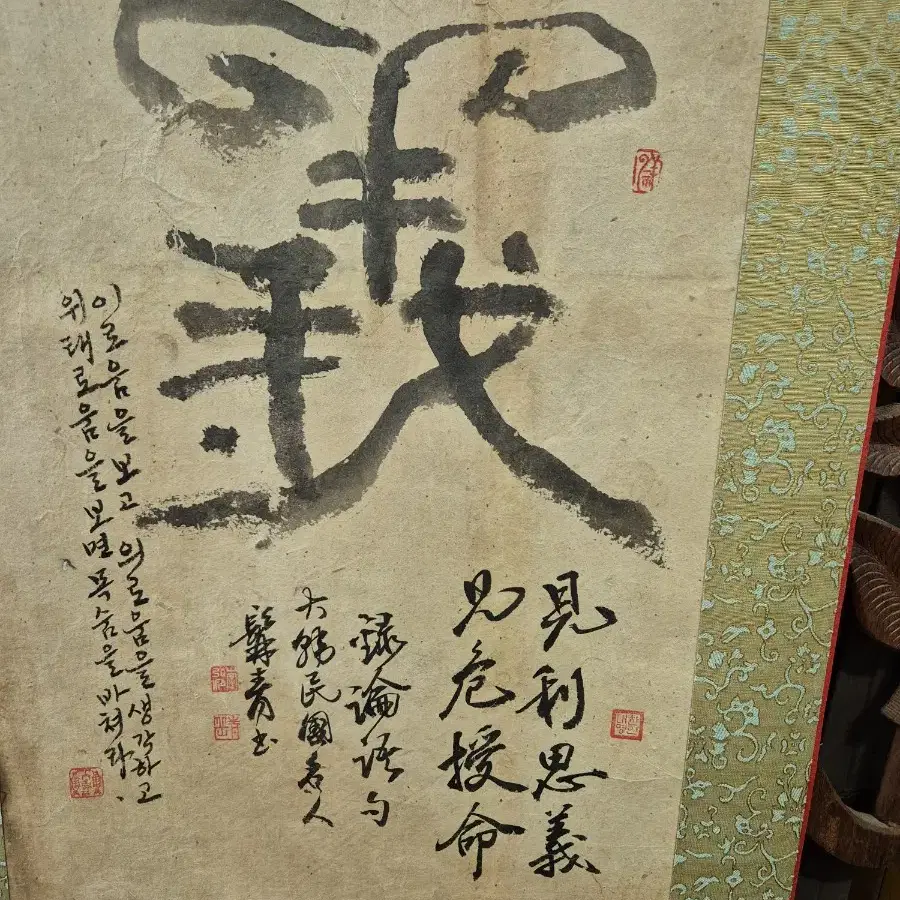 義
見利思義
見危授命
錄論語句
大韓民國名人
青書
이로움을보고 의로움을생각하고
위태로움을보면목숨을바쳐라.